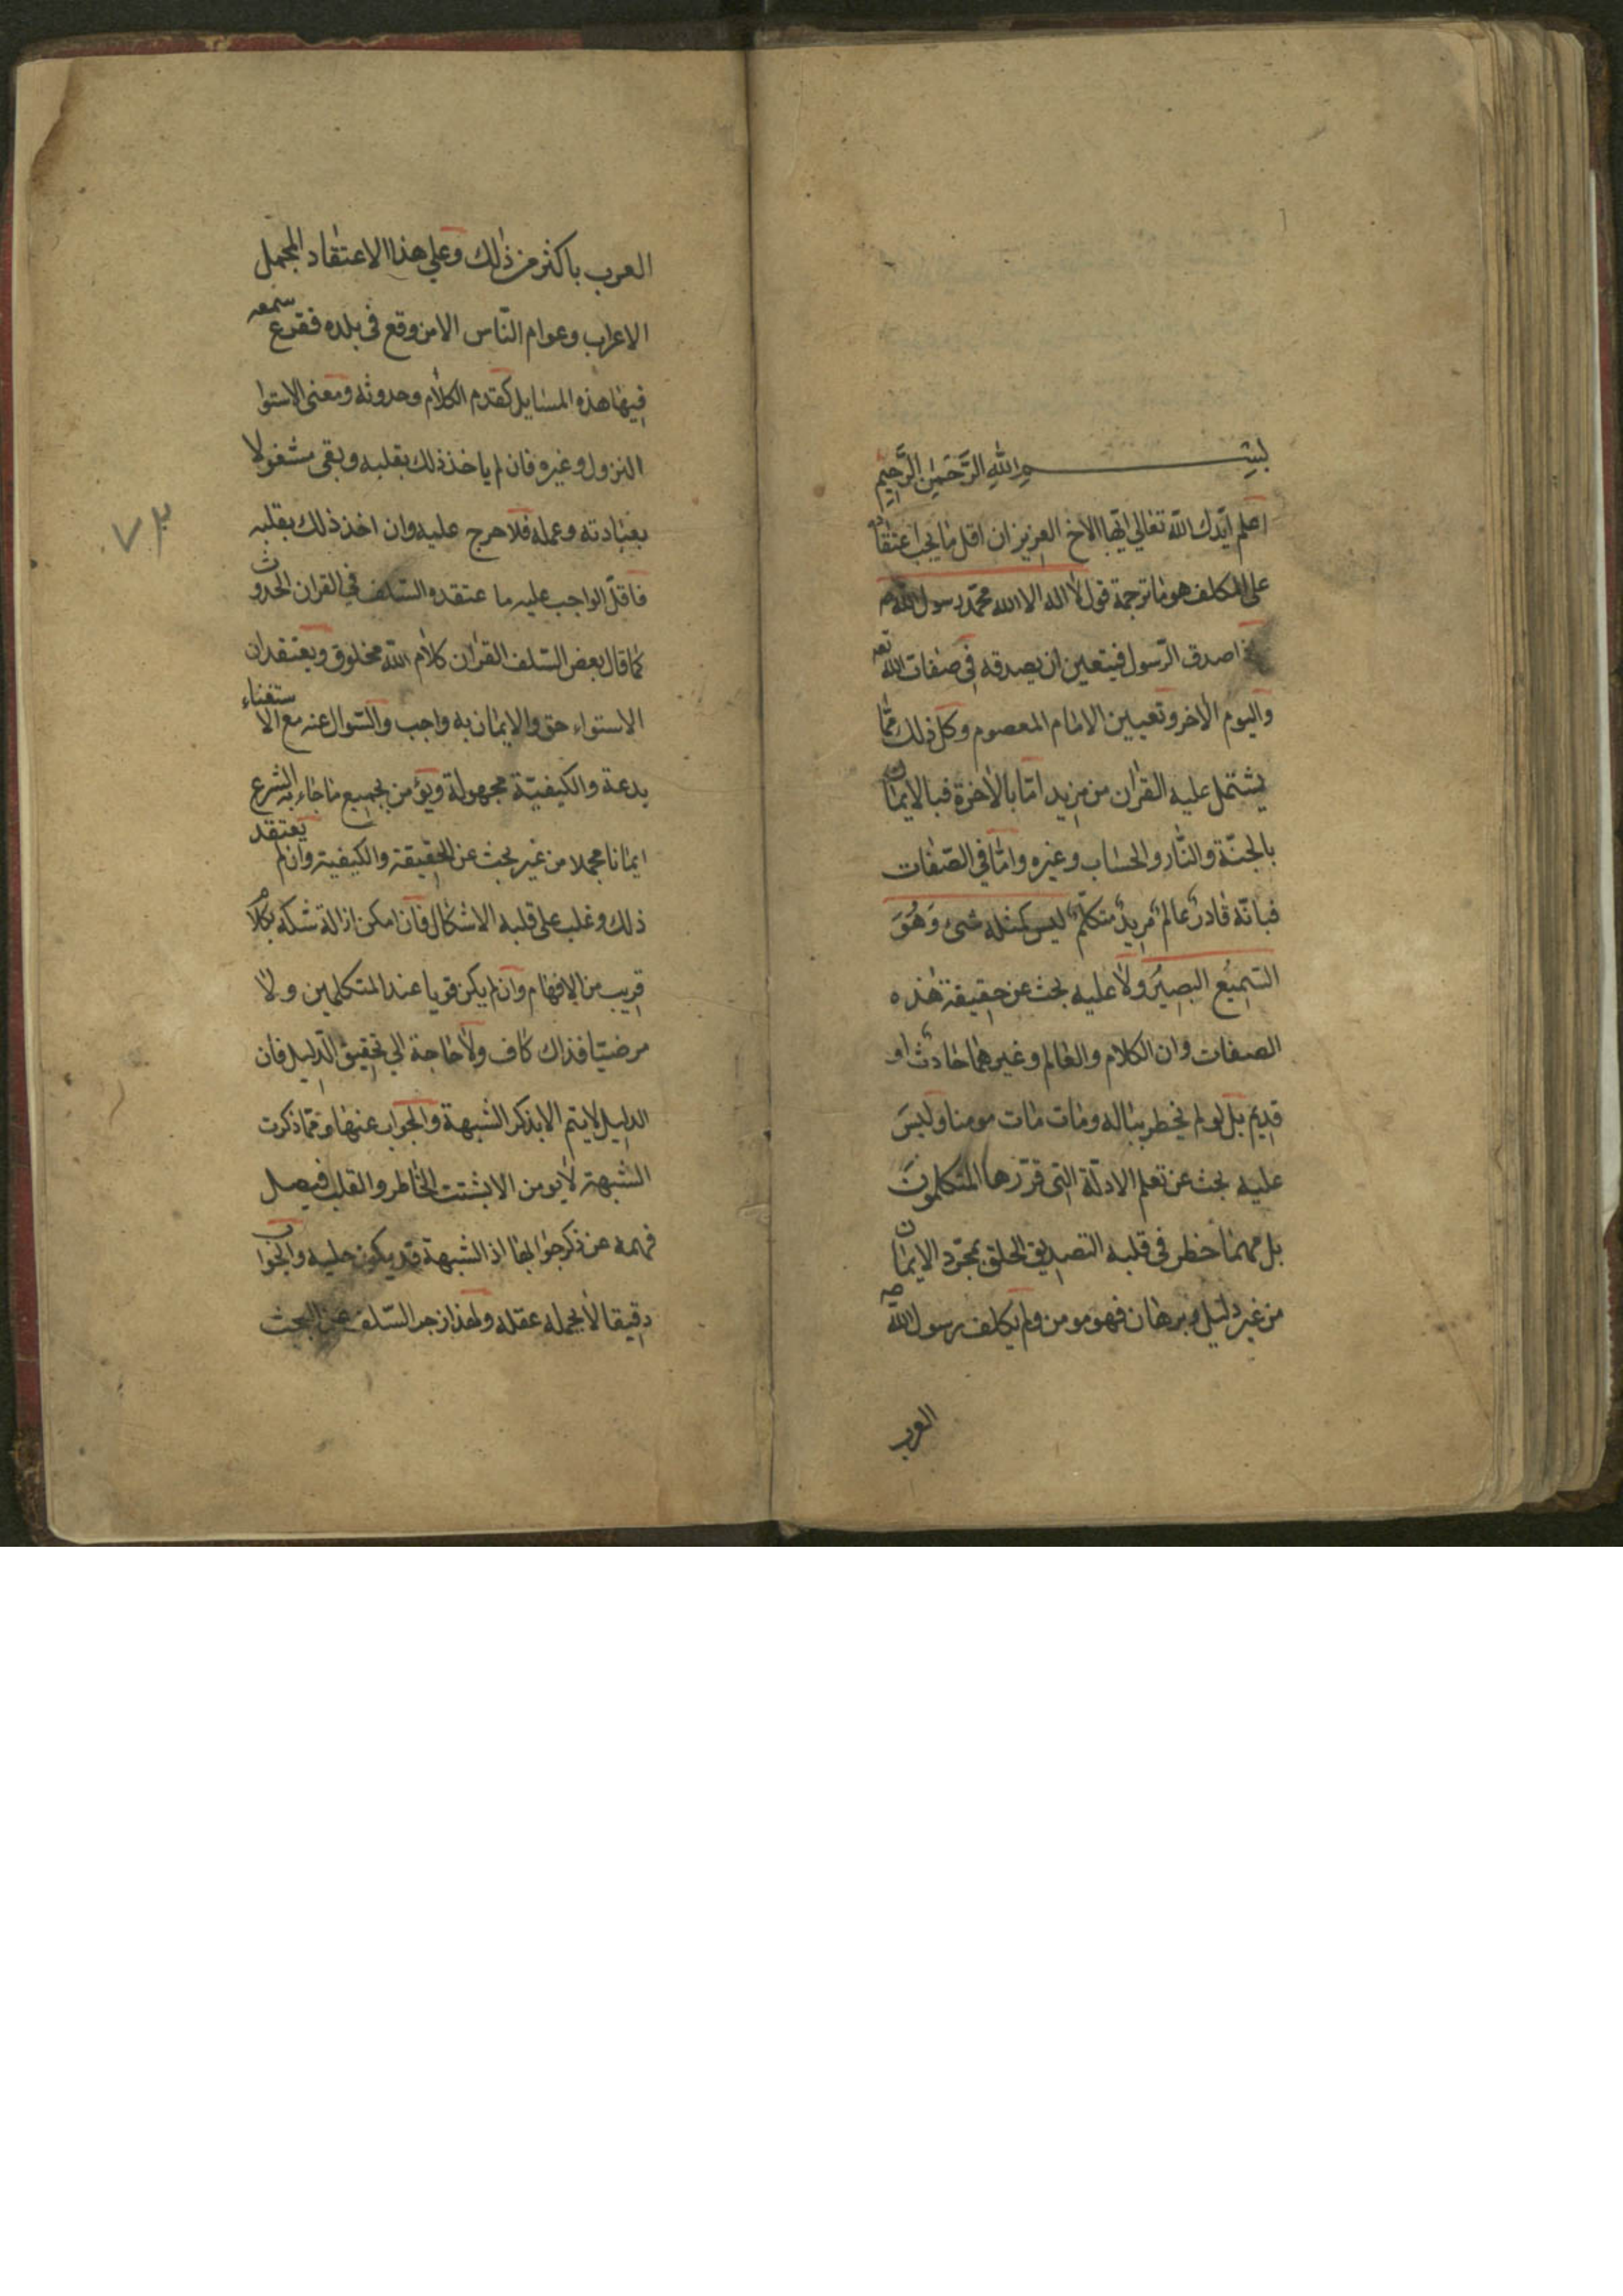 بسم الله الرَّحْمٰنِ الرَّحِيمِ
اعلم ايّدك الله تعالى ايّها الاخ العزيز ان اقل ما يجب اعتقاده
على المكلف هو ما ترجمة قول لا اله الا الله محمّد رسول الله
اصدق الرّسول فيتعين ان يصدقه فى صفات الله تعه
واليوم الآخر وتعيين الامام المعصوم وكل ذلك ممّا
يشتمل عليه القران من مزيد امّا بالاخرة فبالايمان
بالجنّة والنّار والحساب وغيره وامّا فى الصّفات
فبانّه قادرٌ عالمٌ مريدٌ متكلّمٌ ليس كمثله شىء وَهُوَ
السّميُع البصِيَر ولا عليه بحث عن حقيقة هذه
الصفات وان الكلام والعالم وغيرهما حادثٌ او
قديم بل لو لم يخطر بباله ومات مات مومنا وليسَ
عليه بحث عن تعلم الادلّة التى قرّرها المتكلمونَ
بل مهما خطر فى قلبه التصديق الحلق بمجرّد الايمان
من غير دليل وبرهان فهو مومن ولم يكلف رسول الله صه
العرب
العرب باكثر من ذلك وعلى هذا الاعتقاد المجمل
الاعراب وعوام النّاس الا من وقع فى بلده فقرع سمعه
فيها هذه المسايل كقدم الكلام وحدوثه ومعنى الاستوا
النزول وغيره فان لم ياخذ ذلك بقلبه وبقى مشغولا
بعبادته وعمله فلا حرج عليه وان اخذ ذلك بقلبه
فاقلّ الواجب عليه ما عتقده السّلف في القران الحدوث
كما قال بعض السّلف القران كلام الله مخلوق ويعتقد ان
الاستواء حق والايمان به واجب والسّوال عنه مع الاستغناء
بدعة والكيفيّة مجهولة ويؤمن بجميع ما جاء به الشرع
ايمانا مجملا من غير بحث عن الحقيقة والكيفية وان لم يعتقد
ذلك وغلب على قلبه الاشكال فان امكن ازالة شكه بكلام
قريب من الافهام وان لم يكن قويا عند المتكلمين ولا
مرضيّا فذاك كاف ولا حاجة الى تحقيق الدّليل فان
الدليل لا يتم الا بذكر الشبهة والجواب عنها ومما ذكرت
الشبهة لا يومن الا بشتت الخاطر والقلب فيصل
فهمه عن ذكر جوابها اذ الشبهة قد يكون جليه والجواب
دقيقا لا يحمله عقله ولهذا زجر السّلف عن البحث
٧٣